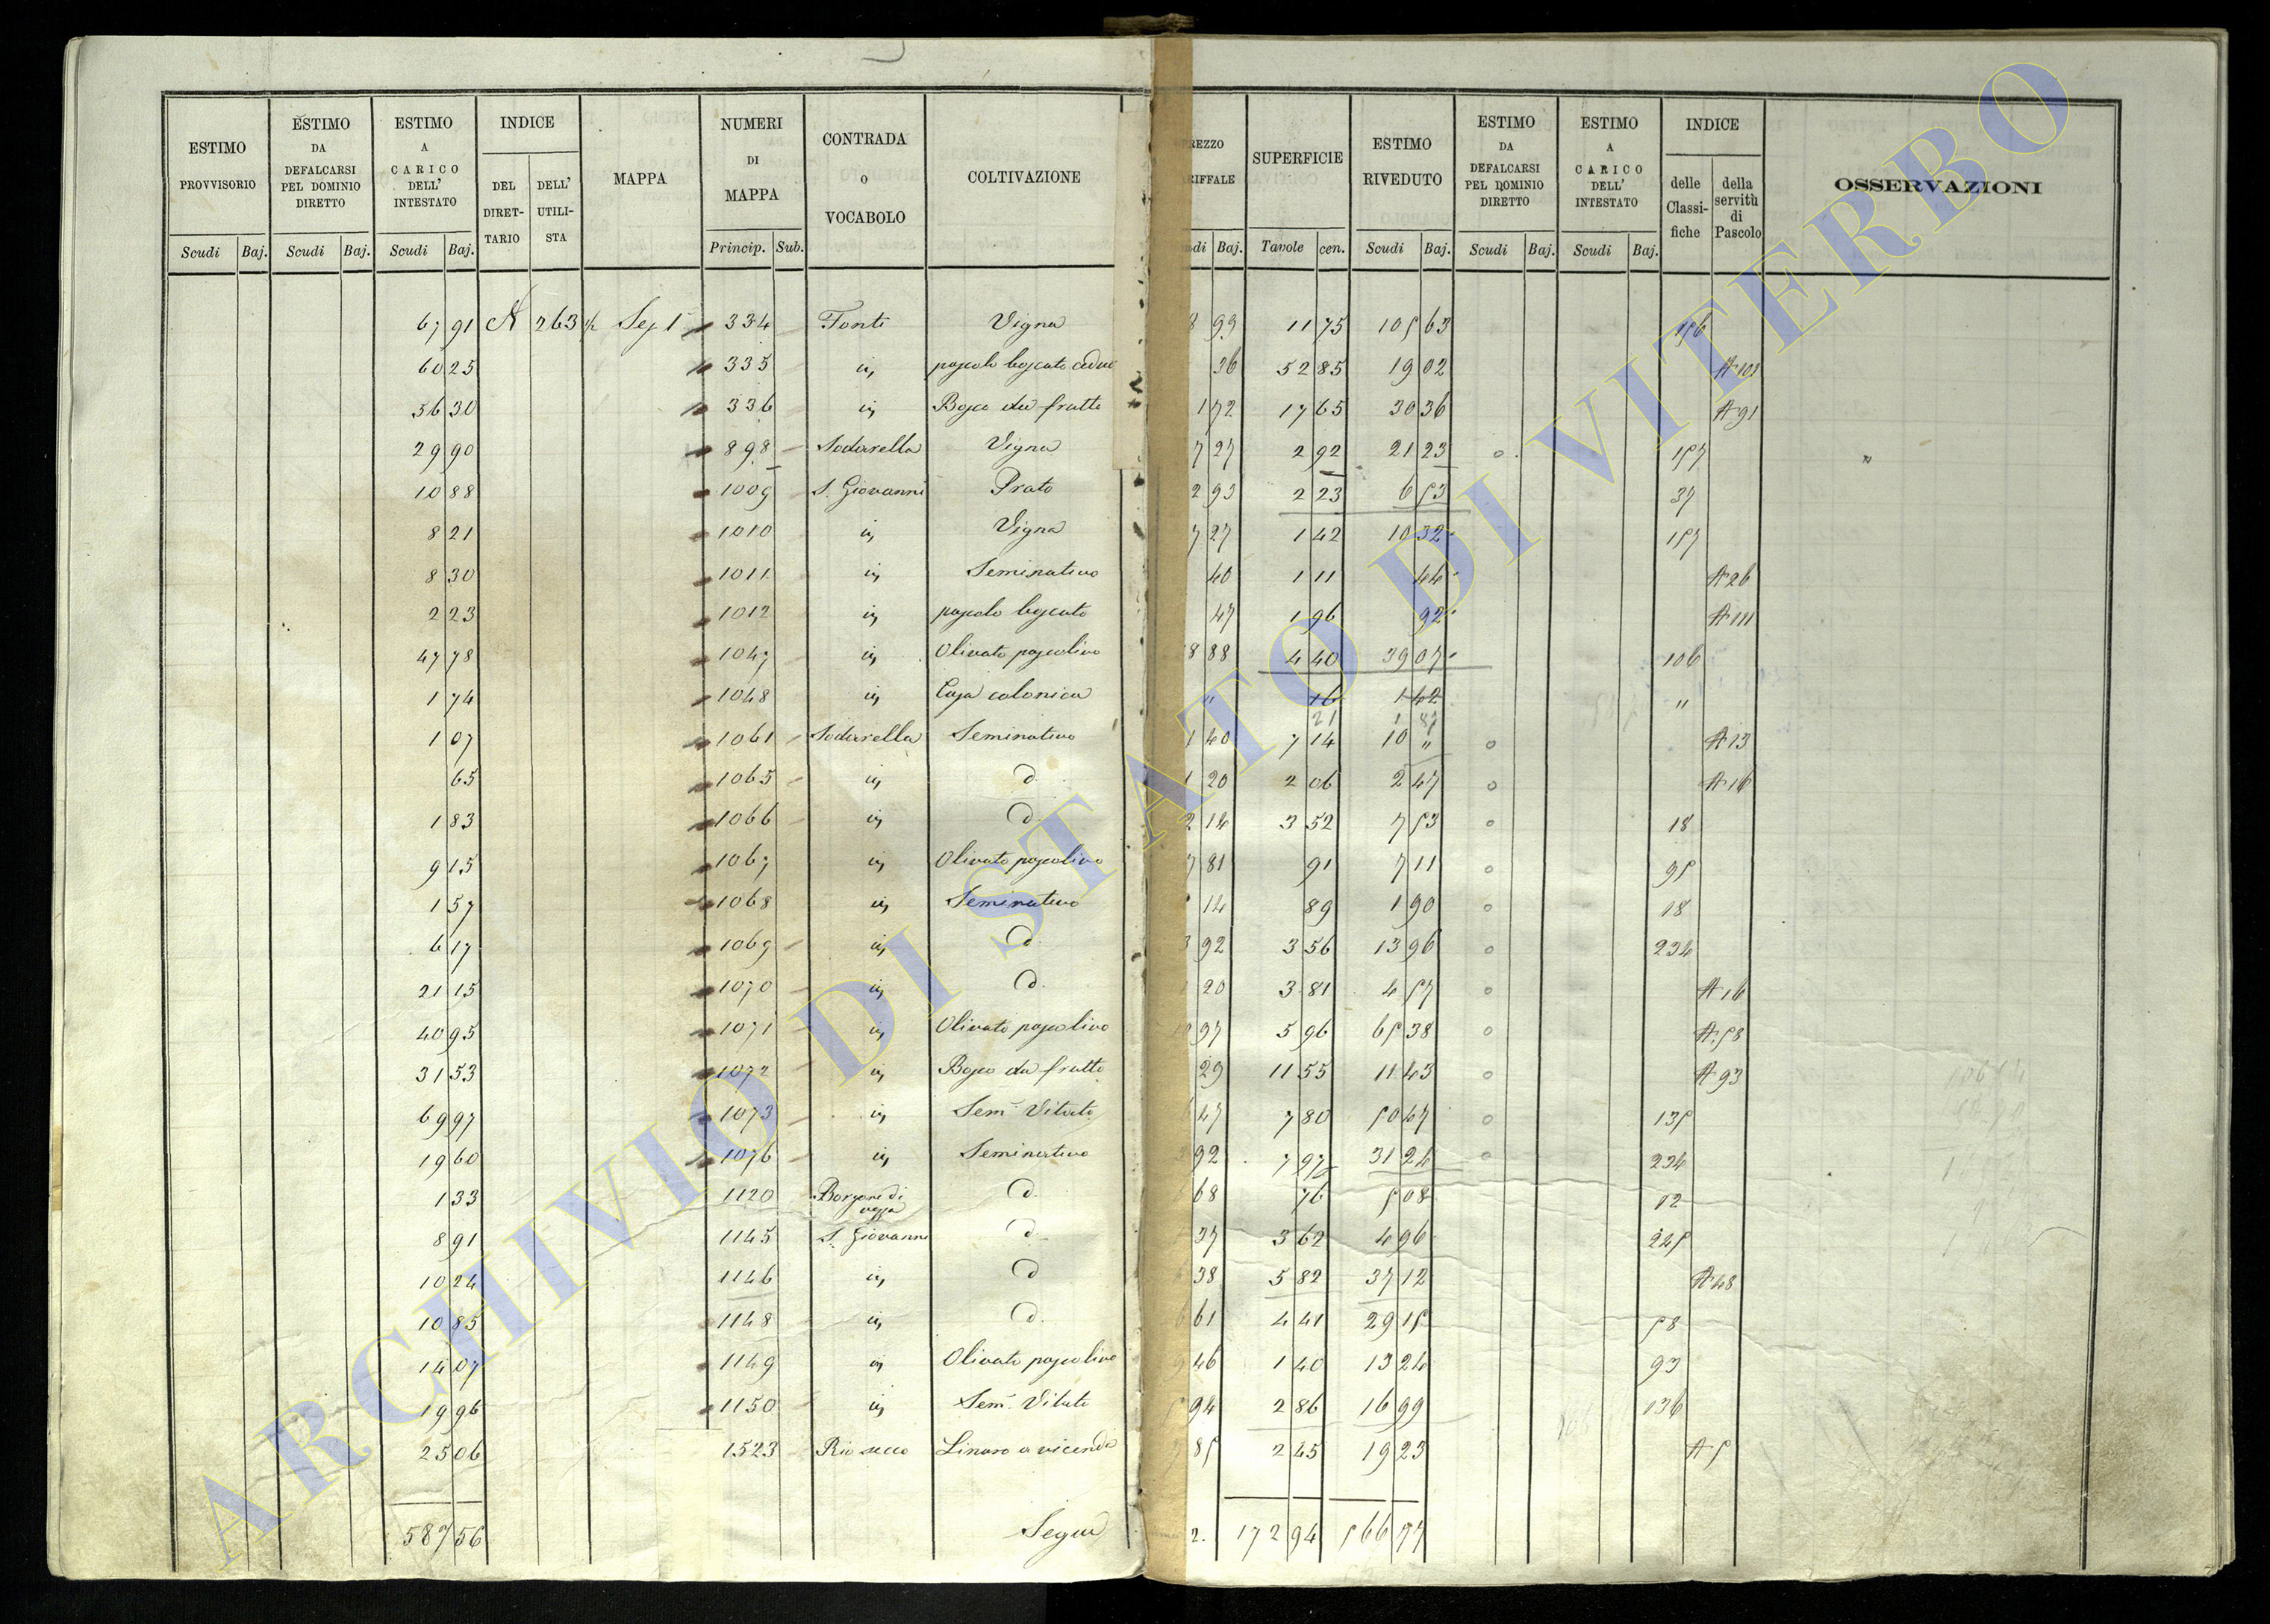 ESTIMO PROVVISORIO Scudi Baj.
ESTIMO DA DEFALCARSI PEL DOMINIO DIRETTO Scudi Baj.
ESTIMO A CARICO DELL' INTESTATO Scudi Baj.
INDICE DEL DIRETTARIO DELL' UTILISTA
MAPPA
NUMERI DI MAPPA Princip. Sub.
CONTRADA O VOCABOLO
COLTIVAZIONE
REZZO RIFFALE di Baj.
SUPERFICIE Tavole cen.
ESTIMO RIVEDUTO Scudi Baj.
ESTIMO DA DEFALCARSI PEL DOMINIO DIRETTO Scudi Baj.
ESTIMO A CARICO DELL' INTESTATO Scudi Baj.
INDICE delle Classifiche della servitù di Pascolo
OSSERVAZIONI
67 91 A 263 334 Fonti Vigna 8 99 11 75 105 63 156
60 25 335 id pascolo boscato ceduo 36 52 85 19 02 A 101
56 30 336 id Bosco da frutto 1 72 17 65 30 36 A 91
29 90 898 Sodarella Vigna 7 27 2 92 21 23 o 157
10 88 1009 S. Giovanni Prato 2 93 2 23 6 53 37
8 21 1010 id Vigna 7 27 1 42 10 32 157
8 30 1011 id Seminativo 40 1 11 44 A 26
2 23 1012 id pascolo boscato 47 1 96 92 A 111
47 78 1047 id Olivato pascolivo 8 88 4 40 39 07 106
1 74 1048 id Casa colonica " 16 1 42 "
21 1 87
1 07 1061 Sodarella Seminativo 1 40 7 14 10 " o A 13
65 1065 id d. 1 20 2 06 2 47 o A 16
1 83 1066 id d. 2 14 3 52 7 53 o 18
9 15 1067 id Olivato pascolivo 7 81 91 7 11 o 95
1 57 1068 id Seminativo 14 89 1 90 o 18
6 17 1069 id d. 3 92 3 56 13 96 o 234
21 15 1070 id d. 20 3 81 4 57 o A 16
40 95 1071 id Olivato pascolivo 97 5 96 65 38 o A 58
31 53 1072 id Bosco da frutto 29 11 55 11 43 o A 93
69 97 1073 id Sem. Vitato 47 7 80 50 47 o 135
19 60 1076 id Seminativo 92 7 97 31 24 o 234
1 33 1120 d. 68 76 5 08 12
8 91 1145 S. Giovanni d. 37 3 62 4 96 225
10 24 1146 id d. 38 5 82 37 12 A 48
10 85 1148 id d. 61 4 41 29 15 58
14 07 1149 id Olivato pascolivo 9 46 1 40 13 24 93
19 96 1150 id Sem. Vitato 94 2 86 16 99 136
25 06 1523 Rio secco Linaro a vicenda 85 2 45 19 23 A 5
587 56 Segue 172 94 566 77
ARCHIVIO DI STATO DI VITERBO